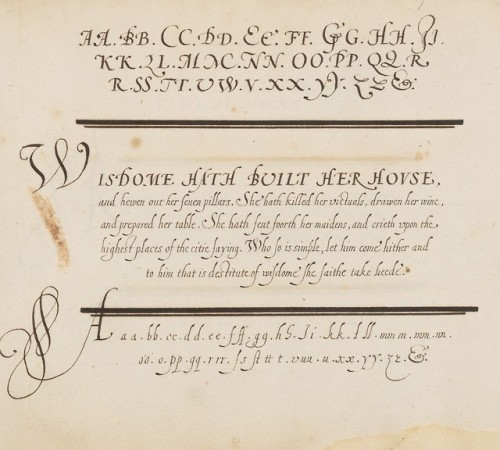 AA. BB. CC. DD. EE. FF. GG. G. HH. JI.
KK. LL. M. NC. NN. OO. PP. QQ. R
R. SS. TT. V W. V. XX. YY. ZZ &.
WISDOME HATH BUILT HER HOVSE,
and hewen out her seuen pillars. She hath killed her victuals, drawen her wine,
and prepared her table. She hath sent foorth her maidens, and crieth vpon the
highest places of the citie saying. Who so is simple, let him come hither and
to him that is destitute of wisdome she saithe take heede.
A a a. bb. cc. dd. ee. ff. gg. hh. Ii. kk. ll. mm m. mm. nn.
oo. o. pp. qq. rrr. ſs ſt tt t. vuu. u. xx. yy. zz. &.